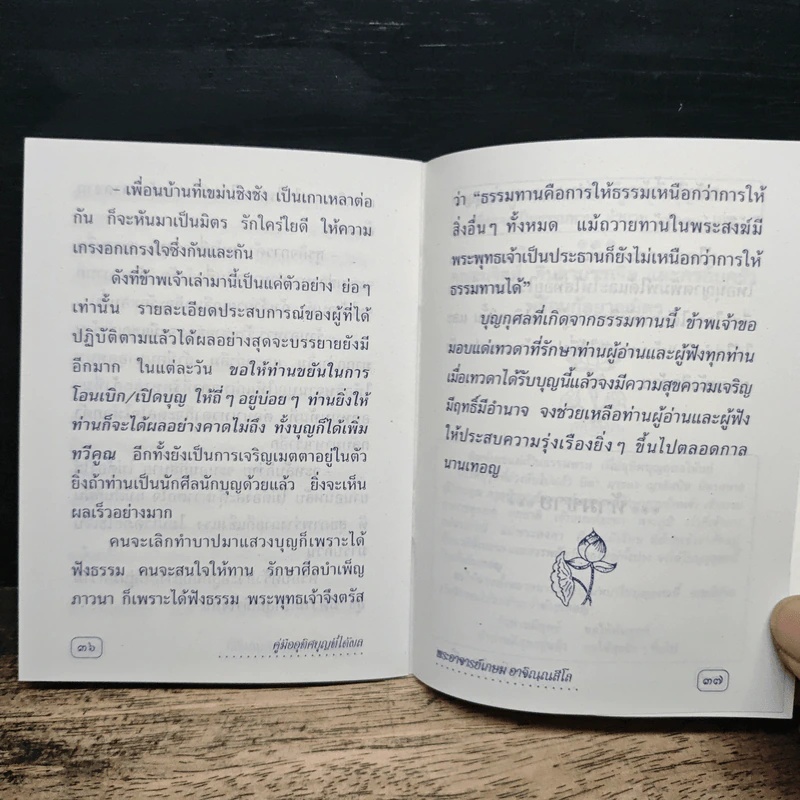 - เพื่อนบ้านที่เขม่นชิงชัง เป็นเกาเหลาต่อ
กัน ก็จะหันมาเป็นมิตร รักใคร่ใยดี ให้ความ
เกรงอกเกรงใจซึ่งกันและกัน
ดังที่ข้าพเจ้าเล่ามานี้เป็นแค่ตัวอย่าง ย่อๆ
เท่านั้น รายละเอียดประสบการณ์ของผู้ที่ได้
ปฏิบัติตามแล้วได้ผลอย่างสุดจะบรรยายยังมี
อีกมาก ในแต่ละวัน ขอให้ท่านขยันในการ
โอนเบิก/เปิดบุญ ให้ถี่ๆ อยู่บ่อยๆ ท่านยิ่งให้
ท่านก็จะได้ผลอย่างคาดไม่ถึง ทั้งบุญก็ได้เพิ่ม
ทวีคูณ อีกทั้งยังเป็นการเจริญเมตตาอยู่ในตัว
ยิ่งถ้าท่านเป็นนักศีลนักบุญด้วยแล้ว ยิ่งจะเห็น
ผลเร็วอย่างมาก
คนจะเลิกทำบาปมาแสวงบุญก็เพราะได้
ฟังธรรม คนจะสนใจให้ทาน รักษาศีลบำเพ็ญ
ภาวนา ก็เพราะได้ฟังธรรม พระพุทธเจ้าจึงตรัส
๓๖ คู่มืออุทิศบุญที่ได้ผล
ว่า “ธรรมทานคือการให้ธรรมเหนือกว่าการให้
สิ่งอื่นๆ ทั้งหมด แม้ถวายทานในพระสงฆ์มี
พระพุทธเจ้าเป็นประธานก็ยังไม่เหนือกว่าการให้
ธรรมทานได้”
บุญกุศลที่เกิดจากธรรมทานนี้ ข้าพเจ้าขอ
มอบแด่เทวดาที่รักษาท่านผู้อ่านและผู้ฟังทุกท่าน
เมื่อเทวดาได้รับบุญนี้แล้วจงมีความสุขความเจริญ
มีฤทธิ์มีอำนาจ จงช่วยเหลือท่านผู้อ่านและผู้ฟัง
ให้ประสบความรุ่งเรืองยิ่งๆ ขึ้นไปตลอดกาล
นานเทอญ
พระอาจารย์เกษม อาจิณฺณสีโล ๓๗